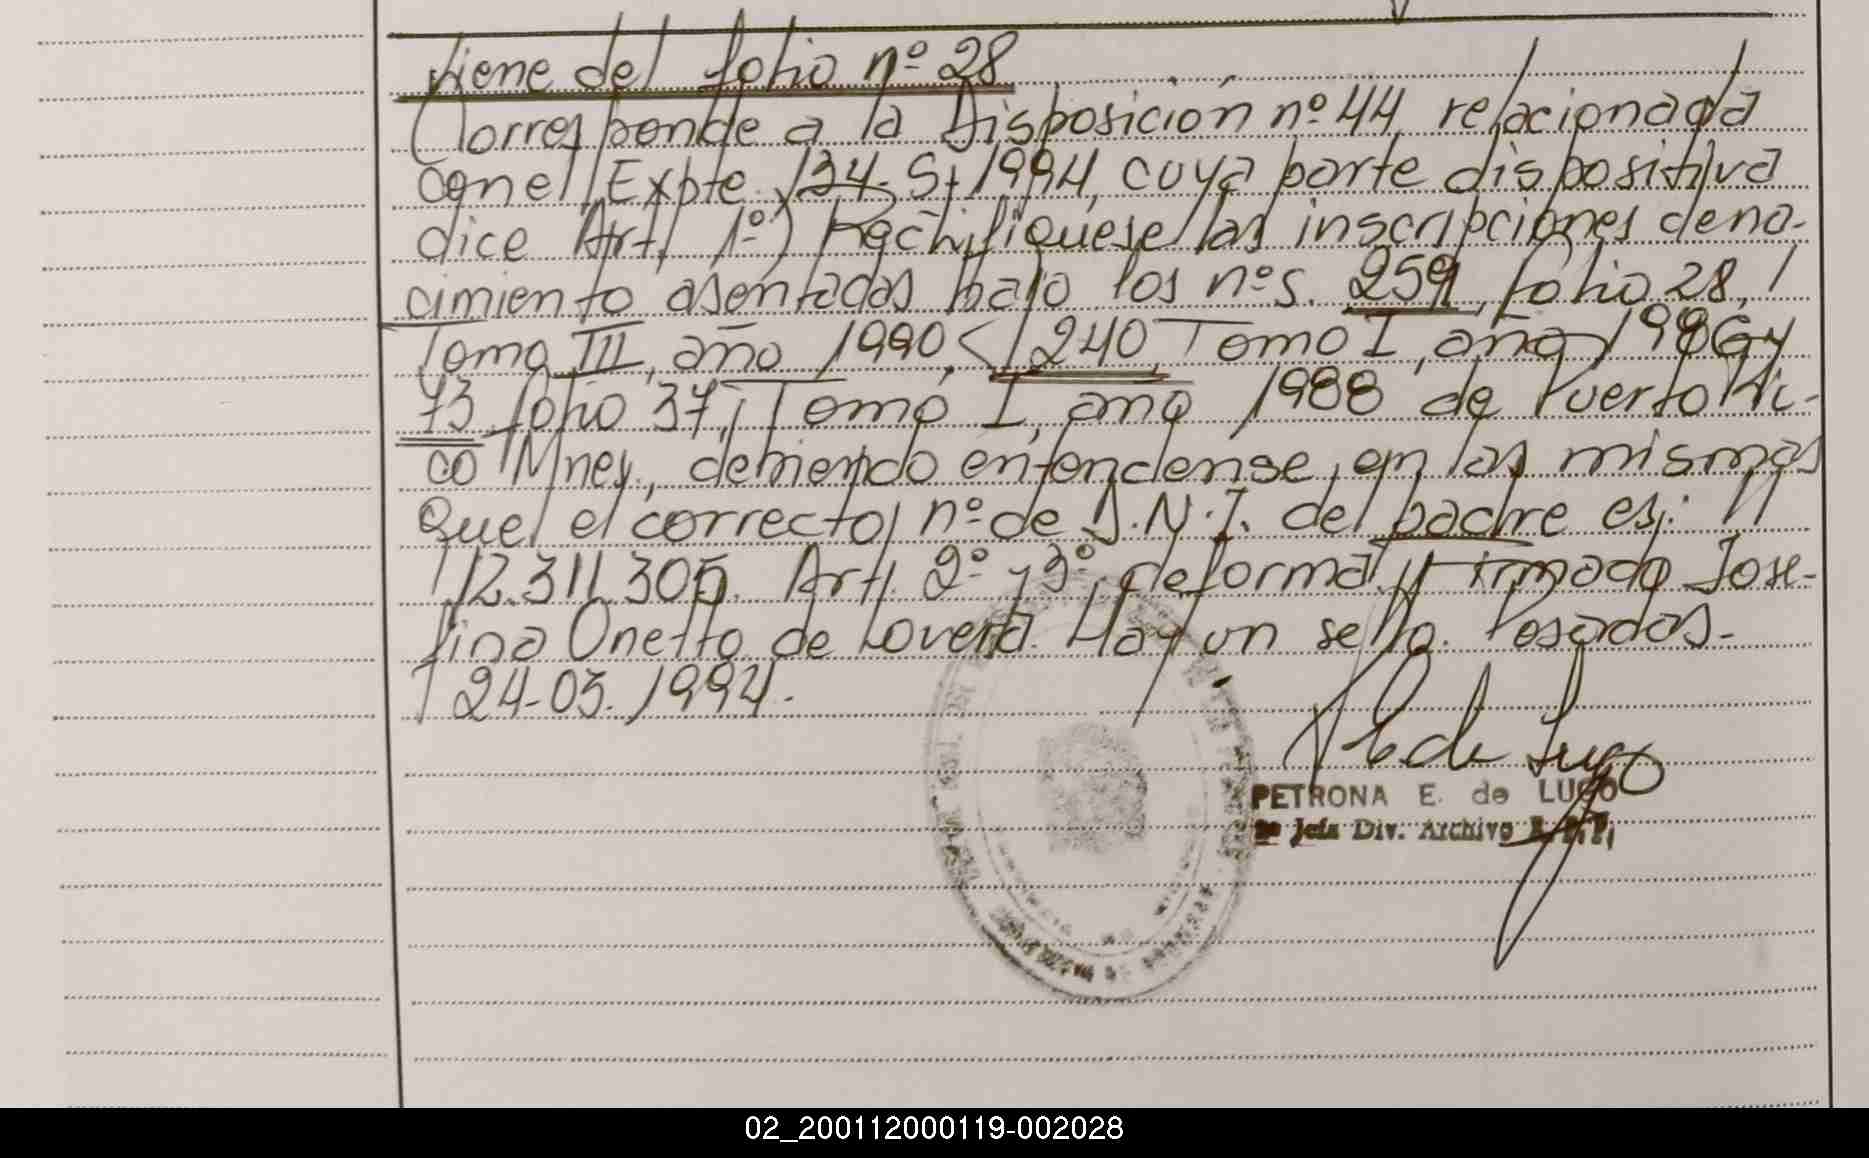 Viene del folio nº 28
Corresponde a la Disposición nº 44, relacionada
con el Expte. 134-S-1994, cuya parte dispositiva
dice Art. 1º) Rectifíquese las inscripciones de na-
cimiento asentadas bajo los nºs. 259, folio 28,
Tomo III, año 1990, 240 Tomo I, año 1986 y
73 folio 37, Tomo I, año 1988 de Puerto Ri-
co Mnes, debiendo entenderse, en las mismas
que el correcto nº de D.N.I. del padre es:
12.311.305. Art. 2º y 3º, de forma. Firmado Jose-
fina Onetto de Lovera. Hay un sello. Posadas-
24-03-1994.-
PETRONA E. de LUGO
Jefa Div. Archivo R.P.P.
02_200112000119-002028